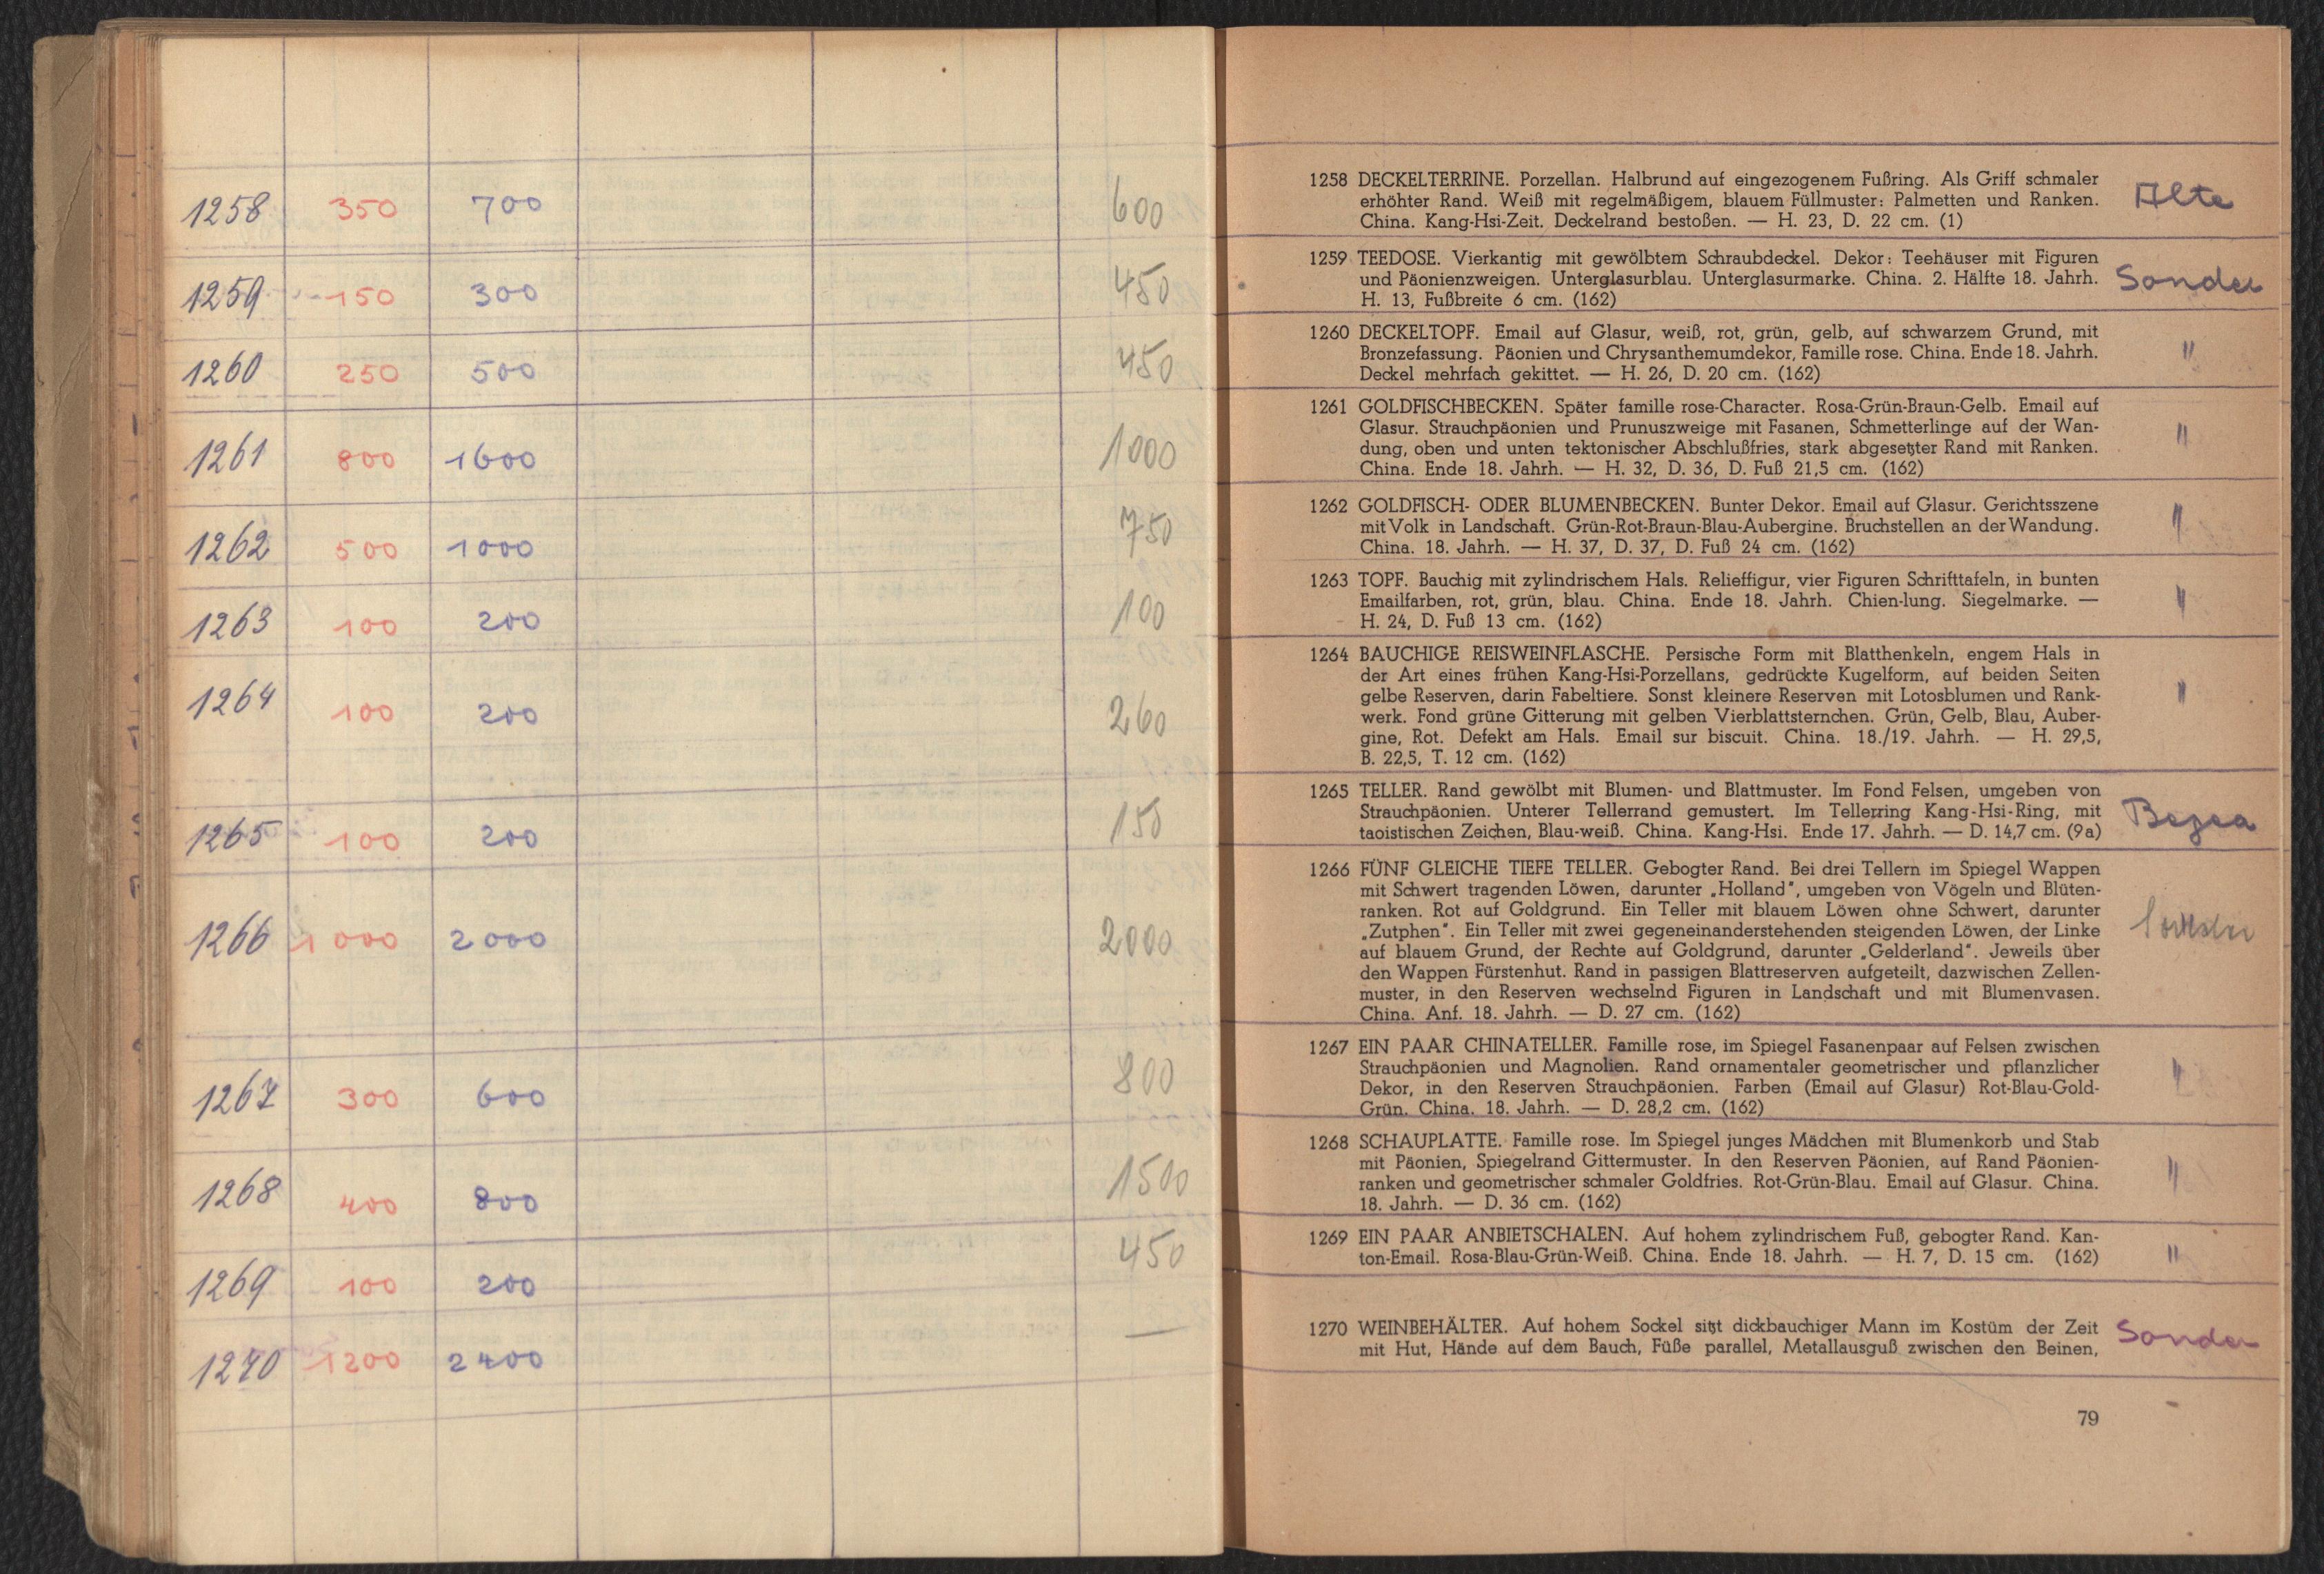 1258 350 700 600
1259 150 300 450
1260 250 500 450
1261 800 1600 1000
1262 500 1000 750
1263 100 200 100
1264 100 200 260
1265 100 200 150
1266 1000 2000 2000
1267 300 600 800
1268 400 800 1500
1269 100 200 450
1270 1200 2400 —
1258 DECKELTERRINE. Porzellan. Halbrund auf eingezogenem Fußring. Als Griff schmaler
erhöhter Rand. Weiß mit regelmäßigem, blauem Füllmuster: Palmetten und Ranken.
China. Kang-Hsi-Zeit. Deckelrand bestoßen. — H. 23, D. 22 cm. (1)
Alte
1259 TEEDOSE. Vierkantig mit gewölbtem Schraubdeckel. Dekor: Teehäuser mit Figuren
und Päonienzweigen. Unterglasurblau. Unterglasurmarke. China. 2. Hälfte 18. Jahrh.
H. 13, Fußbreite 6 cm. (162)
Sonder
1260 DECKELTOPF. Email auf Glasur, weiß, rot, grün, gelb, auf schwarzem Grund, mit
Bronzefassung. Päonien und Chrysanthemumdekor, Famille rose. China. Ende 18. Jahrh.
Deckel mehrfach gekittet. — H. 26, D. 20 cm. (162)
"
1261 GOLDFISCHBECKEN. Später famille rose-Character. Rosa-Grün-Braun-Gelb. Email auf
Glasur. Strauchpäonien und Prunuszweige mit Fasanen, Schmetterlinge auf der Wan-
dung, oben und unten tektonischer Abschlußfries, stark abgesetzter Rand mit Ranken.
China. Ende 18. Jahrh. — H. 32, D. 36, D. Fuß 21,5 cm. (162)
"
1262 GOLDFISCH- ODER BLUMENBECKEN. Bunter Dekor. Email auf Glasur. Gerichtsszene
mit Volk in Landschaft. Grün-Rot-Braun-Blau-Aubergine. Bruchstellen an der Wandung.
China. 18. Jahrh. — H. 37, D. 37, D. Fuß 24 cm. (162)
"
1263 TOPF. Bauchig mit zylindrischem Hals. Relieffigur, vier Figuren Schrifttafeln, in bunten
Emailfarben, rot, grün, blau. China. Ende 18. Jahrh. Chien-lung. Siegelmarke. —
H. 24, D. Fuß 13 cm. (162)
"
1264 BAUCHIGE REISWEINFLASCHE. Persische Form mit Blatthenkeln, engem Hals in
der Art eines frühen Kang-Hsi-Porzellans, gedrückte Kugelform, auf beiden Seiten
gelbe Reserven, darin Fabeltiere. Sonst kleinere Reserven mit Lotosblumen und Rank-
werk. Fond grüne Gitterung mit gelben Vierblattsternchen. Grün, Gelb, Blau, Auber-
gine, Rot. Defekt am Hals. Email sur biscuit. China. 18./19. Jahrh. — H. 29,5,
B. 22,5, T. 12 cm. (162)
"
1265 TELLER. Rand gewölbt mit Blumen- und Blattmuster. Im Fond Felsen, umgeben von
Strauchpäonien. Unterer Tellerrand gemustert. Im Tellerring Kang-Hsi-Ring, mit
taoistischen Zeichen, Blau-weiß. China. Kang-Hsi. Ende 17. Jahrh. — D. 14,7 cm. (9a)
1266 FÜNF GLEICHE TIEFE TELLER. Gebogter Rand. Bei drei Tellern im Spiegel Wappen
mit Schwert tragenden Löwen, darunter „Holland", umgeben von Vögeln und Blüten-
ranken. Rot auf Goldgrund. Ein Teller mit blauem Löwen ohne Schwert, darunter
„Zutphen". Ein Teller mit zwei gegeneinanderstehenden steigenden Löwen, der Linke
auf blauem Grund, der Rechte auf Goldgrund, darunter „Gelderland". Jeweils über
den Wappen Fürstenhut. Rand in passigen Blattreserven aufgeteilt, dazwischen Zellen-
muster, in den Reserven wechselnd Figuren in Landschaft und mit Blumenvasen.
China. Anf. 18. Jahrh. — D. 27 cm. (162)
1267 EIN PAAR CHINATELLER. Famille rose, im Spiegel Fasanenpaar auf Felsen zwischen
Strauchpäonien und Magnolien. Rand ornamentaler geometrischer und pflanzlicher
Dekor, in den Reserven Strauchpäonien. Farben (Email auf Glasur) Rot-Blau-Gold-
Grün. China. 18. Jahrh. — D. 28,2 cm. (162)
"
1268 SCHAUPLATTE. Famille rose. Im Spiegel junges Mädchen mit Blumenkorb und Stab
mit Päonien, Spiegelrand Gittermuster. In den Reserven Päonien, auf Rand Päonien-
ranken und geometrischer schmaler Goldfries. Rot-Grün-Blau. Email auf Glasur. China.
18. Jahrh. — D. 36 cm. (162)
"
1269 EIN PAAR ANBIETSCHALEN. Auf hohem zylindrischem Fuß, gebogter Rand. Kan-
ton-Email. Rosa-Blau-Grün-Weiß. China. Ende 18. Jahrh. — H. 7, D. 15 cm. (162)
"
1270 WEINBEHÄLTER. Auf hohem Sockel sitzt dickbauchiger Mann im Kostüm der Zeit
mit Hut, Hände auf dem Bauch, Füße parallel, Metallausguß zwischen den Beinen,
Sonder
79